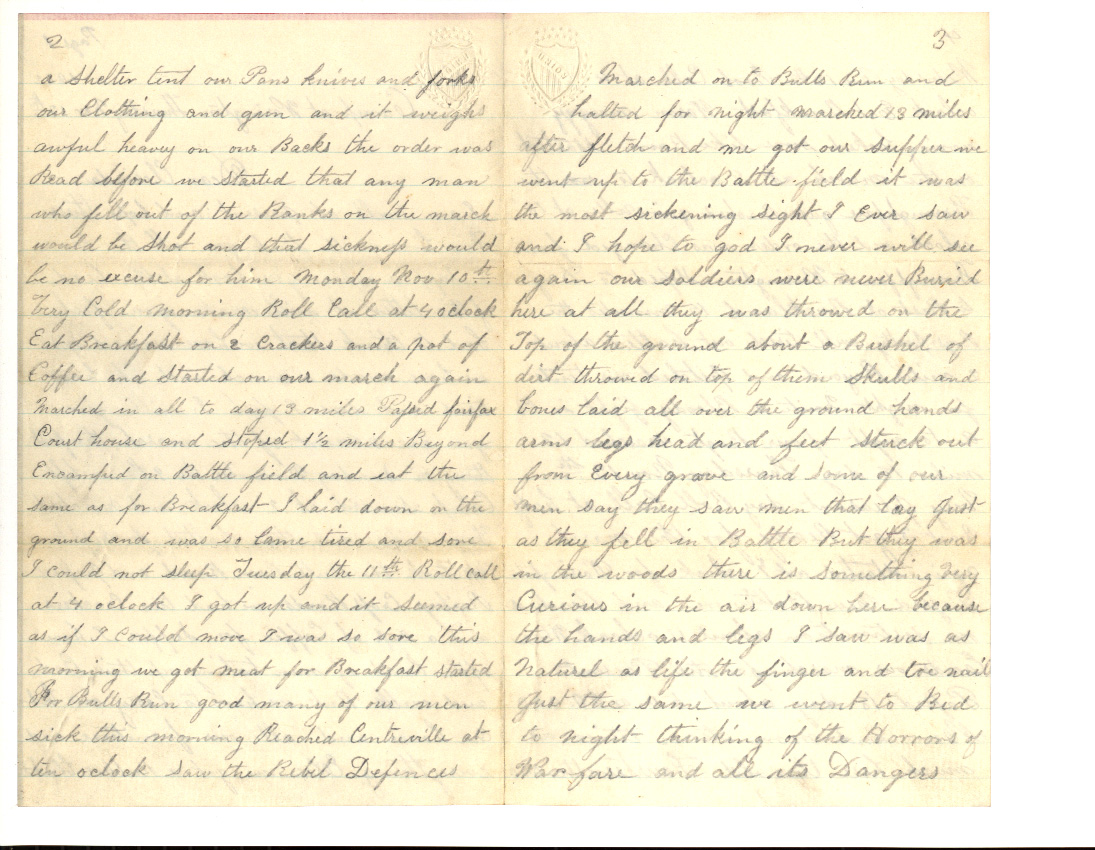 2
a Shelter tent our Pans knives and forks
our Clothing and gun and it weighs
awful heavey on our Backs the order was
Read before we started that any man
who fell out of the Ranks on the march
would be Shot and that sickness would
be no excuse for him Monday Nov 10th
Very Cold morning Roll Call at 4 oclock
Eat Breakfast on 2 Crackers and a pot of
Coffee and Started on our march again
Marched in all to day 13 miles Passed fairfax
Court house and stoped 1 1/2 miles Beyond
Encamped on Battle field and eat the
same as for Breakfast I laid down on the
ground and was so lame tired and sore
I could not sleep Tuesday the 11th Roll call
at 4 oclock I got up and it seemed
as if I could move I was so sore this
morning we got meat for Breakfast started
For Bulls Run good many of our men
sick this morning Reached Centreville at
ten oclock saw the Rebel Defences
3
UNION
Marched on to Bulls Run and
halted for night marched 13 miles
after fletch and me got our supper we
went up to the Battle field it was
the most sickening sight I Ever saw
and I hope to god I never will see
again our soldiers were never Buried
here at all they was throwed on the
Top of the ground about a Bushel of
dirt throwed on top of them Skulls and
bones laid all over the ground hands
arms legs head and feet stuck out
from Every grave and some of our
men say they saw men that lay Just
as they fell in Battle But they was
in the woods there is something very
Curious in the air down here because
the hands and legs I saw was as
Naturel as life the finger and toe nail
Just the same we went to Bed
to night thinking of the Horrors of
War fare and all its Dangers